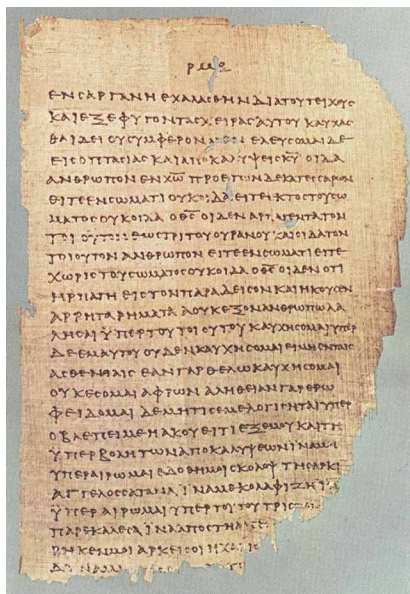 ΡΜΘ
ΕΝ ΣΑΡΓΑΝΗ ΕΧΑΛΑΣΘΗΝ ΔΙΑ ΤΟΥ ΤΕΙΧΟΥΣ
ΚΑΙ ΕΞΕΦΥΓΟΝ ΤΑΣ ΧΕΙΡΑΣ ΑΥΤΟΥ ΚΑΥΧΑΣ
ΘΑΙ ΔΕΙ ΟΥ ΣΥΜΦΕΡΟΝ ΜΕΝ ΕΛΕΥΣΟΜΑΙ ΔΕ
ΕΙΣ ΟΠΤΑΣΙΑΣ ΚΑΙ ΑΠΟΚΑΛΥΨΕΙΣ ΚΥ ΟΙΔΑ
ΑΝΘΡΩΠΟΝ ΕΝ ΧΩ ΠΡΟ ΕΤΩΝ ΔΕΚΑΤΕΣΣΑΡΩΝ
ΕΙΤΕ ΕΝ ΣΩΜΑΤΙ ΟΥΚ ΟΙΔΑ ΕΙΤΕ ΕΚΤΟΣ ΤΟΥ ΣΩ
ΜΑΤΟΣ ΟΥΚ ΟΙΔΑ Ο ΘΣ ΟΙΔΕΝ ΑΡΠΑΓΕΝΤΑ ΤΟΝ
ΤΟΙΟΥΤΟΝ ΕΩΣ ΤΡΙΤΟΥ ΟΥΡΑΝΟΥ ΚΑΙ ΟΙΔΑ ΤΟΝ
ΤΟΙΟΥΤΟΝ ΑΝΘΡΩΠΟΝ ΕΙΤΕ ΕΝ ΣΩΜΑΤΙ ΕΙΤΕ
ΧΩΡΙΣ ΤΟΥ ΣΩΜΑΤΟΣ ΟΥΚ ΟΙΔΑ Ο ΘΣ ΟΙΔΕΝ ΟΤΙ
ΗΡΠΑΓΗ ΕΙΣ ΤΟΝ ΠΑΡΑΔΕΙΣΟΝ ΚΑΙ ΗΚΟΥΣΕΝ
ΑΡΡΗΤΑ ΡΗΜΑΤΑ Α ΟΥΚ ΕΞΟΝ ΑΝΘΡΩΠΩ ΛΑ
ΛΗΣΑΙ ΥΠΕΡ ΤΟΥ ΤΟΙΟΥΤΟΥ ΚΑΥΧΗΣΟΜΑΙ ΥΠΕΡ
ΔΕ ΕΜΑΥΤΟΥ ΟΥΔΕΝ ΚΑΥΧΗΣΟΜΑΙ ΕΙ ΜΗ ΕΝ ΤΑΙΣ
ΑΣΘΕΝΕΙΑΙΣ ΕΑΝ ΓΑΡ ΘΕΛΩ ΚΑΥΧΗΣΟΜΑΙ
ΟΥΚ ΕΣΟΜΑΙ ΑΦΡΩΝ ΑΛΗΘΕΙΑΝ ΓΑΡ ΕΡΩ
ΦΕΙΔΟΜΑΙ ΔΕ ΜΗ ΤΙΣ ΕΜΕ ΛΟΓΙΣΗΤΑΙ ΥΠΕΡ
Ο ΒΛΕΠΕΙ ΜΕ Η ΑΚΟΥΕΙ ΤΙ ΕΞ ΕΜΟΥ ΚΑΙ ΤΗ
ΥΠΕΡΒΟΛΗ ΤΩΝ ΑΠΟΚΑΛΥΨΕΩΝ ΙΝΑ ΜΗ
ΥΠΕΡΑΙΡΩΜΑΙ ΕΔΟΘΗ ΜΟΙ ΣΚΟΛΟΨ ΤΗ ΣΑΡΚΙ
ΑΓΓΕΛΟΣ ΣΑΤΑΝΑ ΙΝΑ ΜΕ ΚΟΛΑΦΙΖΗ ΙΝΑ
ΥΠΕΡΑΙΡΩΜΑΙ ΥΠΕΡ ΤΟΥΤΟΥ ΤΡΙΣ
ΠΑΡΕΚΑΛΕΣΑ ΙΝΑ ΑΠΟΣΤΗ
ΡΗΚΕΝ ΜΟΙ ΑΡΚΕΙ ΣΟΙ Η ΧΑΡΙΣ